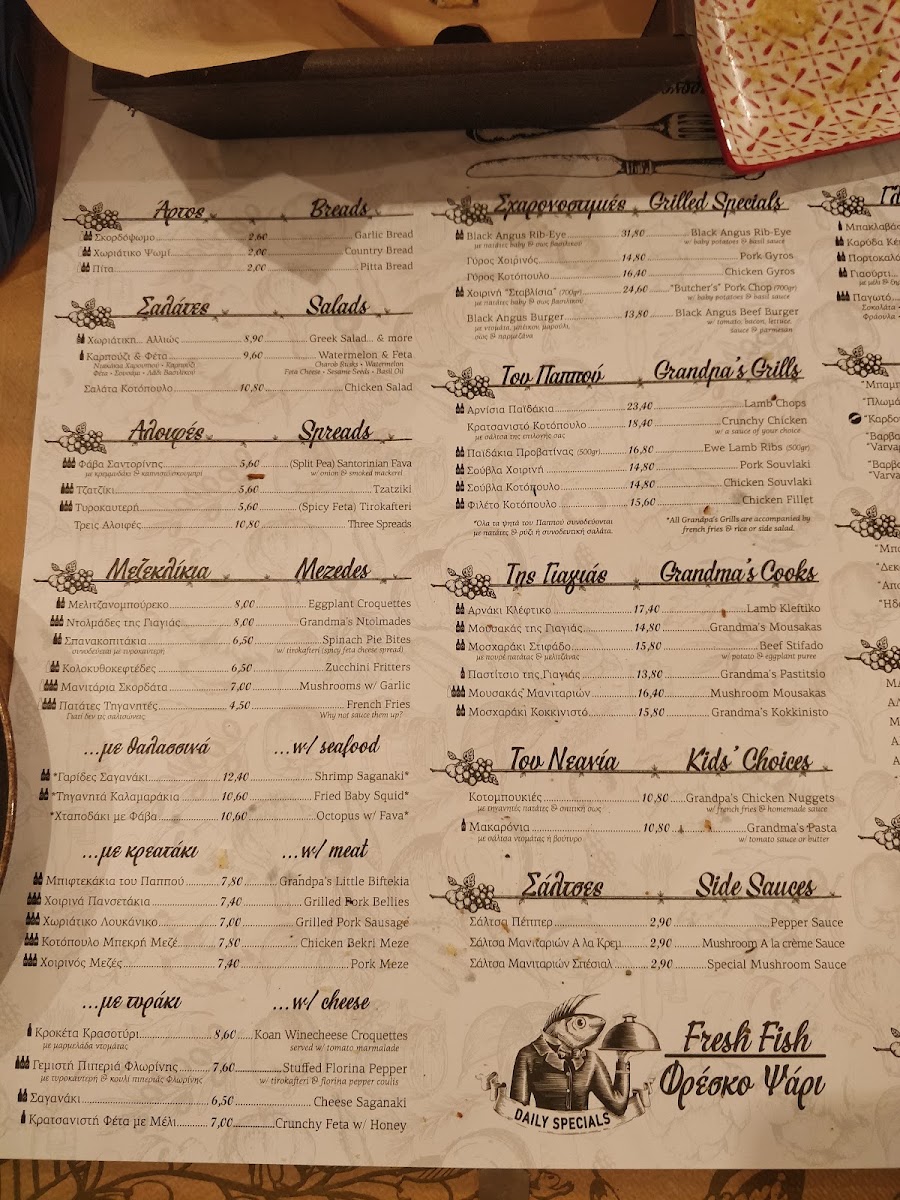 Άρτος Breads
Σκορδόψωμο 2,60 Garlic Bread
Χωριάτικο Ψωμί 2,00 Country Bread
Πίτα 2,00 Pitta Bread
Σαλάτες Salads
Χωριάτικη... Αλλιώς 8,90 Greek Salad... & more
Καρπούζι & Φέτα 9,60 Watermelon & Feta
Ντακάκια Χαρουπιού • Καρπούζι Charob Rusks • Watermelon
Φέτα • Σουσάμι • Λάδι Βασιλικού Feta Cheese • Sesame Seeds • Basil Oil
Σαλάτα Κοτόπουλο 10,80 Chicken Salad
Αλοιφές Spreads
Φάβα Σαντορίνης 5,60 (Split Pea) Santorinian Fava
με κρεμμυδάκι & καπνιστό σκουμπρί w/ onion & smoked mackerel
Τζατζίκι 5,60 Tzatziki
Τυροκαυτερή 5,60 (Spicy Feta) Tirokafteri
Τρεις Αλοιφές 10,80 Three Spreads
Μεζεκλίκια Mezedes
Μελιτζανομπούρεκο 8,00 Eggplant Croquettes
Ντολμάδες της Γιαγιάς 8,00 Grandma's Ntolmades
Σπανακοπιτάκια 6,50 Spinach Pie Bites
συνοδεύεται με τυροκαυτερή w/ tirokafteri (spicy feta cheese spread)
Κολοκυθοκεφτέδες 6,50 Zucchini Fritters
Μανιτάρια Σκορδάτα 7,00 Mushrooms w/ Garlic
Πατάτες Τηγανητές 4,50 French Fries
Γιατί δεν τις σαλτσώνεις Why not sauce them up?
...με θαλασσινά ...w/ seafood
*Γαρίδες Σαγανάκι 12,40 Shrimp Saganaki*
*Τηγανητά Καλαμαράκια 10,60 Fried Baby Squid*
*Χταποδάκι με Φάβα 10,60 Octopus w/ Fava*
...με κρεατάκι ...w/ meat
Μπιφτεκάκια του Παππού 7,80 Grandpa's Little Biftekia
Χοιρινά Πανσετάκια 7,40 Grilled Pork Bellies
Χωριάτικο Λουκάνικο 7,00 Grilled Pork Sausage
Κοτόπουλο Μπεκρή Μεζέ 7,80 Chicken Bekri Meze
Χοιρινός Μεζές 7,40 Pork Meze
...με τυράκι ...w/ cheese
Κροκέτα Κρασοτύρι 8,60 Koan Winecheese Croquettes
με μαρμελάδα ντομάτας served w/ tomato marmalade
Γεμιστή Πιπεριά Φλωρίνης 7,60 Stuffed Florina Pepper
με τυροκαυτερή & κουλί πιπεριάς Φλωρίνης w/ tirokafteri & florina pepper coulis
Σαγανάκι 6,50 Cheese Saganaki
Κρατσανιστή Φέτα με Μέλι 7,00 Crunchy Feta w/ Honey
Σχαρονοστιμιές Grilled Specials
Black Angus Rib-Eye 31,80 Black Angus Rib-Eye
με πατάτες baby & σως βασιλικού w/ baby potatoes & basil sauce
Γύρος Χοιρινός 14,80 Pork Gyros
Γύρος Κοτόπουλο 16,40 Chicken Gyros
Χοιρινή "Σταβλίσια" (700gr) 24,60 "Butcher's" Pork Chop (700gr)
με πατάτες baby & σως βασιλικού w/ baby potatoes & basil sauce
Black Angus Burger 13,80 Black Angus Beef Burger
με ντομάτα, μπέικον μαρούλι, w/ tomato, bacon, lettuce
σως & παρμεζάνα sauce & parmesan
Του Παππού Grandpa's Grills
Αρνίσια Παϊδάκια 23,40 Lamb Chops
Κρατσανιστό Κοτόπουλο 18,40 Crunchy Chicken
με σάλτσα της επιλογής σας w/ a sauce of your choice
Παϊδάκια Προβατίνας (500gr) 16,80 Ewe Lamb Ribs (500gr)
Σούβλα Χοιρινή 14,80 Pork Souvlaki
Σούβλα Κοτόπουλο 14,80 Chicken Souvlaki
Φιλέτο Κοτόπουλο 15,60 Chicken Fillet
*Όλα τα ψητά του Παππού συνοδεύονται *All Grandpa's Grills are accompanied by
με πατάτες & ρύζι ή συνοδευτική σαλάτα. french fries & rice or side salad.
Της Γιαγιάς Grandma's Cooks
Αρνάκι Κλέφτικο 17,40 Lamb Kleftiko
Μουσακάς της Γιαγιάς 14,80 Grandma's Mousakas
Μοσχαράκι Στιφάδο 15,80 Beef Stifado
με πουρέ πατάτας & μελιτζάνας w/ potato & eggplant puree
Παστίτσιο της Γιαγιάς 13,80 Grandma's Pastitsio
Μουσακάς Μανιταριών 16,40 Mushroom Mousakas
Μοσχαράκι Κοκκινιστό 15,80 Grandma's Kokkinisto
Του Νεανία Kids' Choices
Κοτομπουκιές 10,80 Grandpa's Chicken Nuggets
με τηγανητές πατάτες & σπιτική σως w/ french fries & homemade sauce
Μακαρόνια 10,80 Grandma's Pasta
με σάλτσα ντομάτας ή βούτυρο w/ tomato sauce or butter
Σάλτσες Side Sauces
Σάλτσα Πέππερ 2,90 Pepper Sauce
Σάλτσα Μανιταριών Α λα Κρεμ 2,90 Mushroom A la crème Sauce
Σάλτσα Μανιταριών Σπέσιαλ 2,90 Special Mushroom Sauce
DAILY SPECIALS
Fresh Fish
Φρέσκο Ψάρι
Μπακλαβάς
Καρύδα
Πορτοκαλό
Γιαούρτι...
Παγωτό
Σοκολάτα •
Φράουλα •